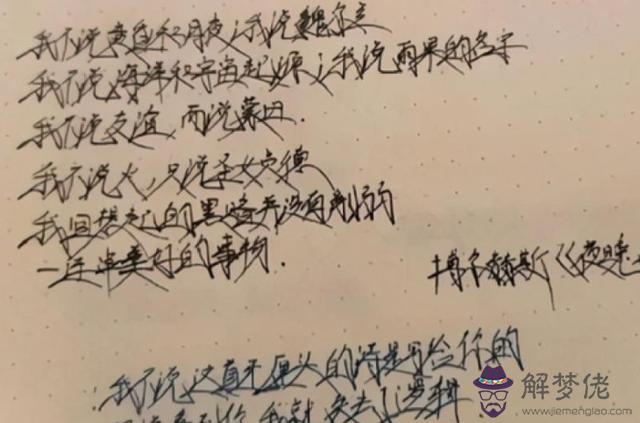 我不说黄昏和月夜；我说魏尔兰
我不说海洋和宇宙起源；我说雨果的名字
我不说友谊，而说蒙田.
我不说火，只说圣女贞德
我回想的黑暗并没有削弱
一连串美好的事物.
博尔赫斯《夜晚
我不说，这真不是头的诗是写给你的
我就失去了逻辑.
解梦佬
www.jiemenglao.com